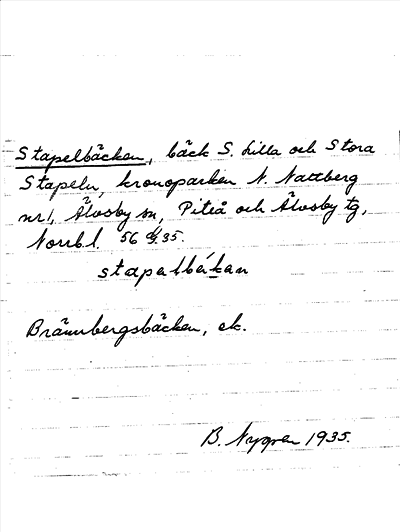 Stapelbäcken, bäck S. Lilla och Stora
Stapeln, kronoparken N. Nattberg
nr 1, Älvsby sn, Piteå och Älvsby tg,
Norrb. l. 56 35.
stapelbäkan
Brännbergsbäcken, ek.
B. Nygren 1935.